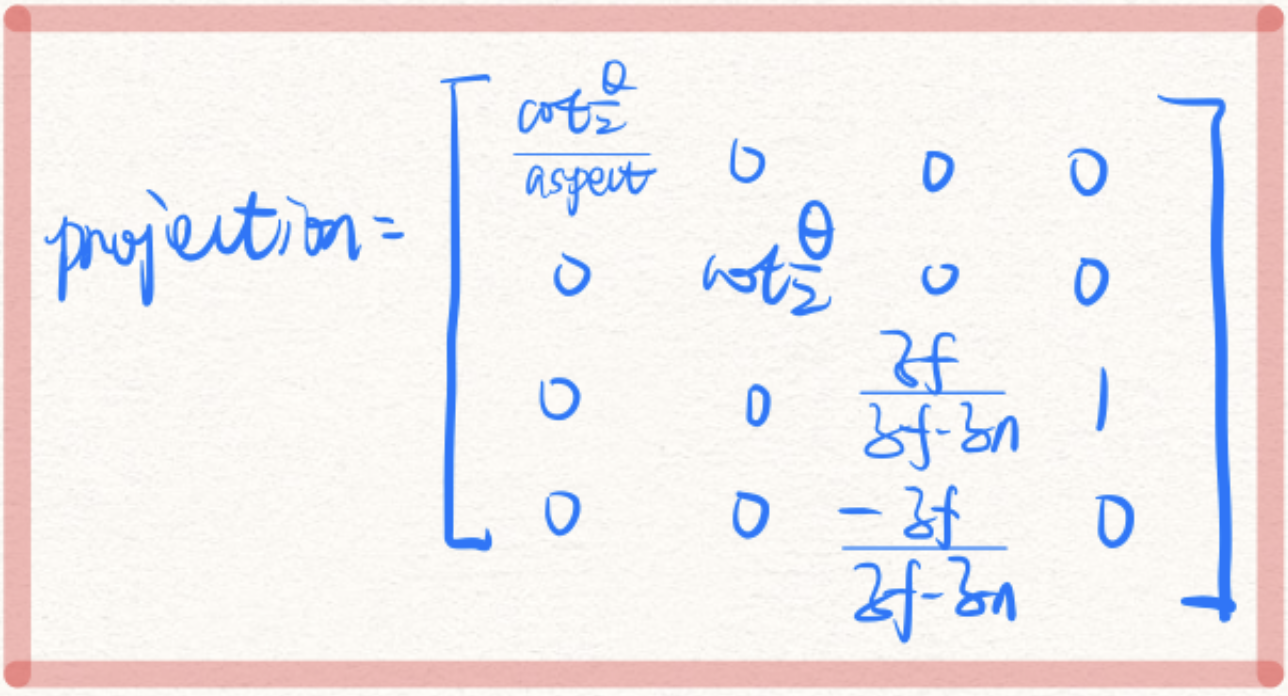 projection = [
cot θ/2 / aspect 0 0 0
0 cot θ/2 0 0
0 0 zf / zf-zn 1
0 0 -zf / zf-zn 0
]